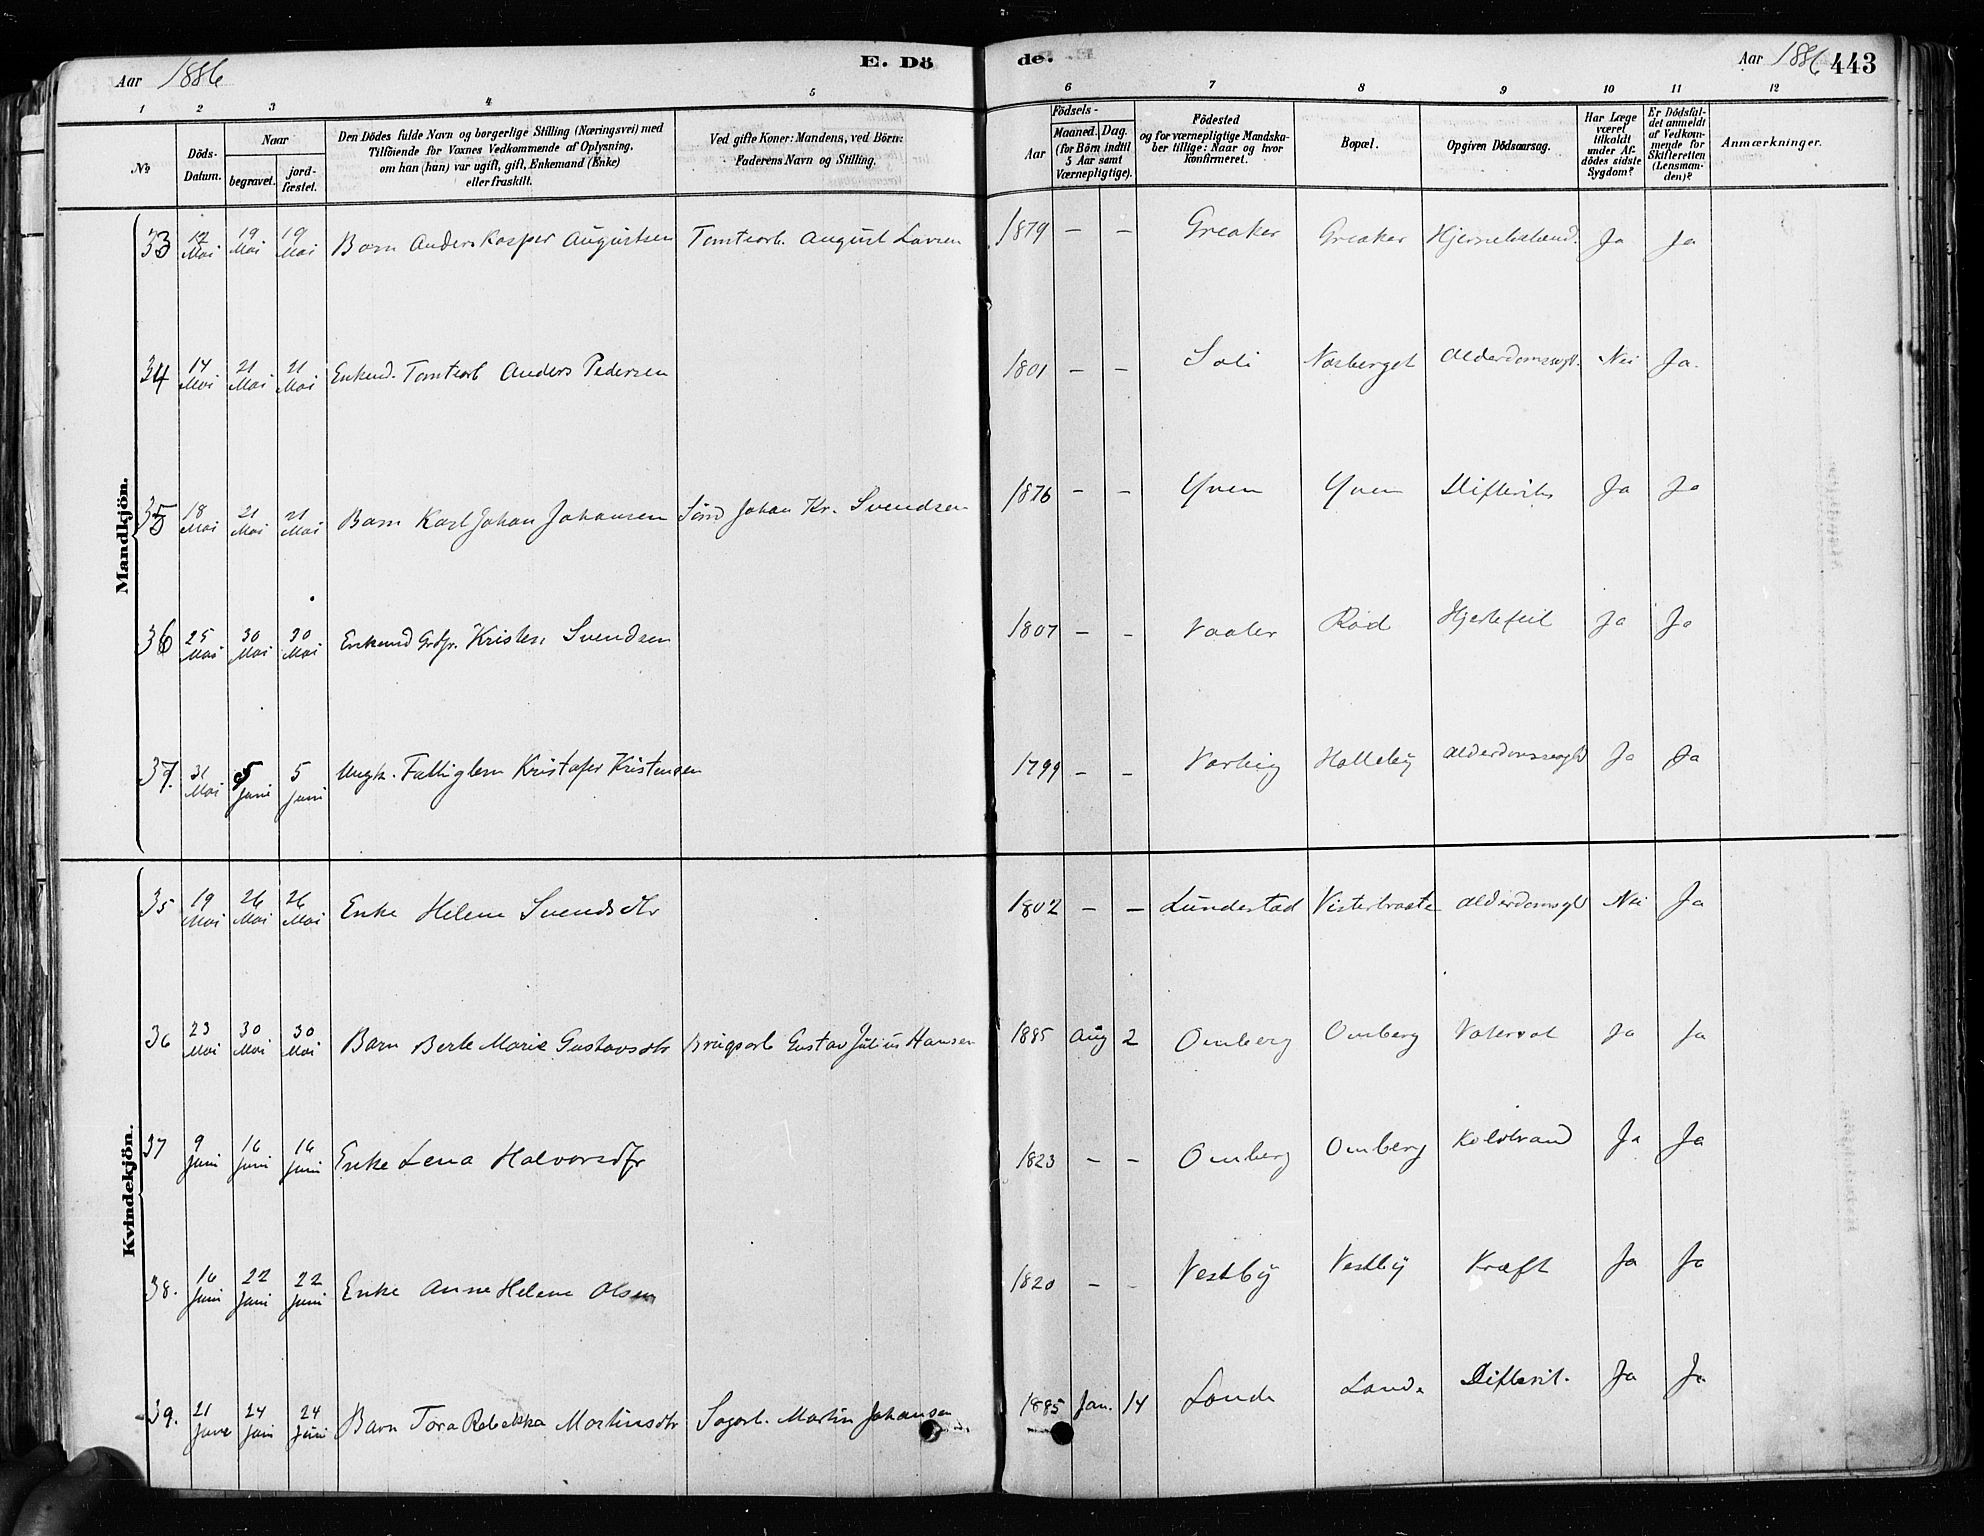 Aar 1886
E. Dö
de.
Aar 1886
443
1 2 3 4 5 6 7 8 9 10 11 12
No
Döds-Datum.
Naar
begravet.
jordfæstet.
Den Dödes fulde Navn og borgerlige Stilling (Næringsvei) med Tilföiende for Voxnes Vedkommende af Oplysning, om han (hun) var ugift, gift, Enkemand (Enke) eller fraskilt.
Ved gifte Koner: Mandens, ved Börn: Faderens Navn og Stilling.
Födsels-
Aar
Maaned. Dag. (for Börn indtil 5 Aar samt Værnepligtige).
Födested og for værnepligtige Mandskaber tillige: Naar og hvor konfirmeret.
Bopæl.
Opgiven Dödsaarsag.
Har Læge været tilkaldt under Afdödes sidste Sygdom?
Er Dödsfaldet anmeldt af Vedkommende for Skifteretten (Lensmanden)?
Anmærkninger.
Mandkjön.
33 12 Mai 19 Mai 19 Mai Barn Anders Kasper Augustsen Tomtearb. August Larsen 1879 – – Greaker Greaker Ja Ja
34 14 Mai 21 Mai 21 Mai Enkemd. Tomtearb Anders Pedersen 1801 – – Soli Alderdomssygd. Nei Ja.
35 18 Mai 21 Mai 21 Mai Barn Karl Johan Johansen Johan Kr. Svendsen 1876 – – Yven Yven Difterit Ja Ja
36 25 Mai 30 Mai 30 Mai Enkemd Grdbr. Kristen Svendsen 1807 – – Vaaler Rød Hjertefeil Ja Ja
37. 31 Mai 5 Juni 5 Juni Ungk. Fattiglem Kristofer Kristensen 1799 – – Varteig Halleby Alderdomssygd Ja Ja
Kvindekjön.
35 19 Mai 26 Mai 26 Mai Enke Helene Svendsdtr 1802 – – Lundestad Visterbraate Alderdomssygd Nei Ja
36 23 Mai 30 Mai 30 Mai Barn Berte Marie Gustavsdtr Brugsarb Gustav Julius Hansen 1885 Aug 2 Omberg Omberg Ja Ja
37 9 Juni 16 Juni 16 Juni Enke Lena Halvorsdtr 1823 – – Omberg Omberg Koldbrand Ja Ja
38. 16 Juni 22 Juni 22 Juni Enke Anne Helene Olsen 1820 – – Vestby Vestby Kræft Ja Ja
39. 21 Juni 24 Juni 24 Juni Barn Tora Rebekka Martinsdtr Sagarb. Martin Johansen 1885 Jan. 14 Lande Lande Difterit. Ja Ja